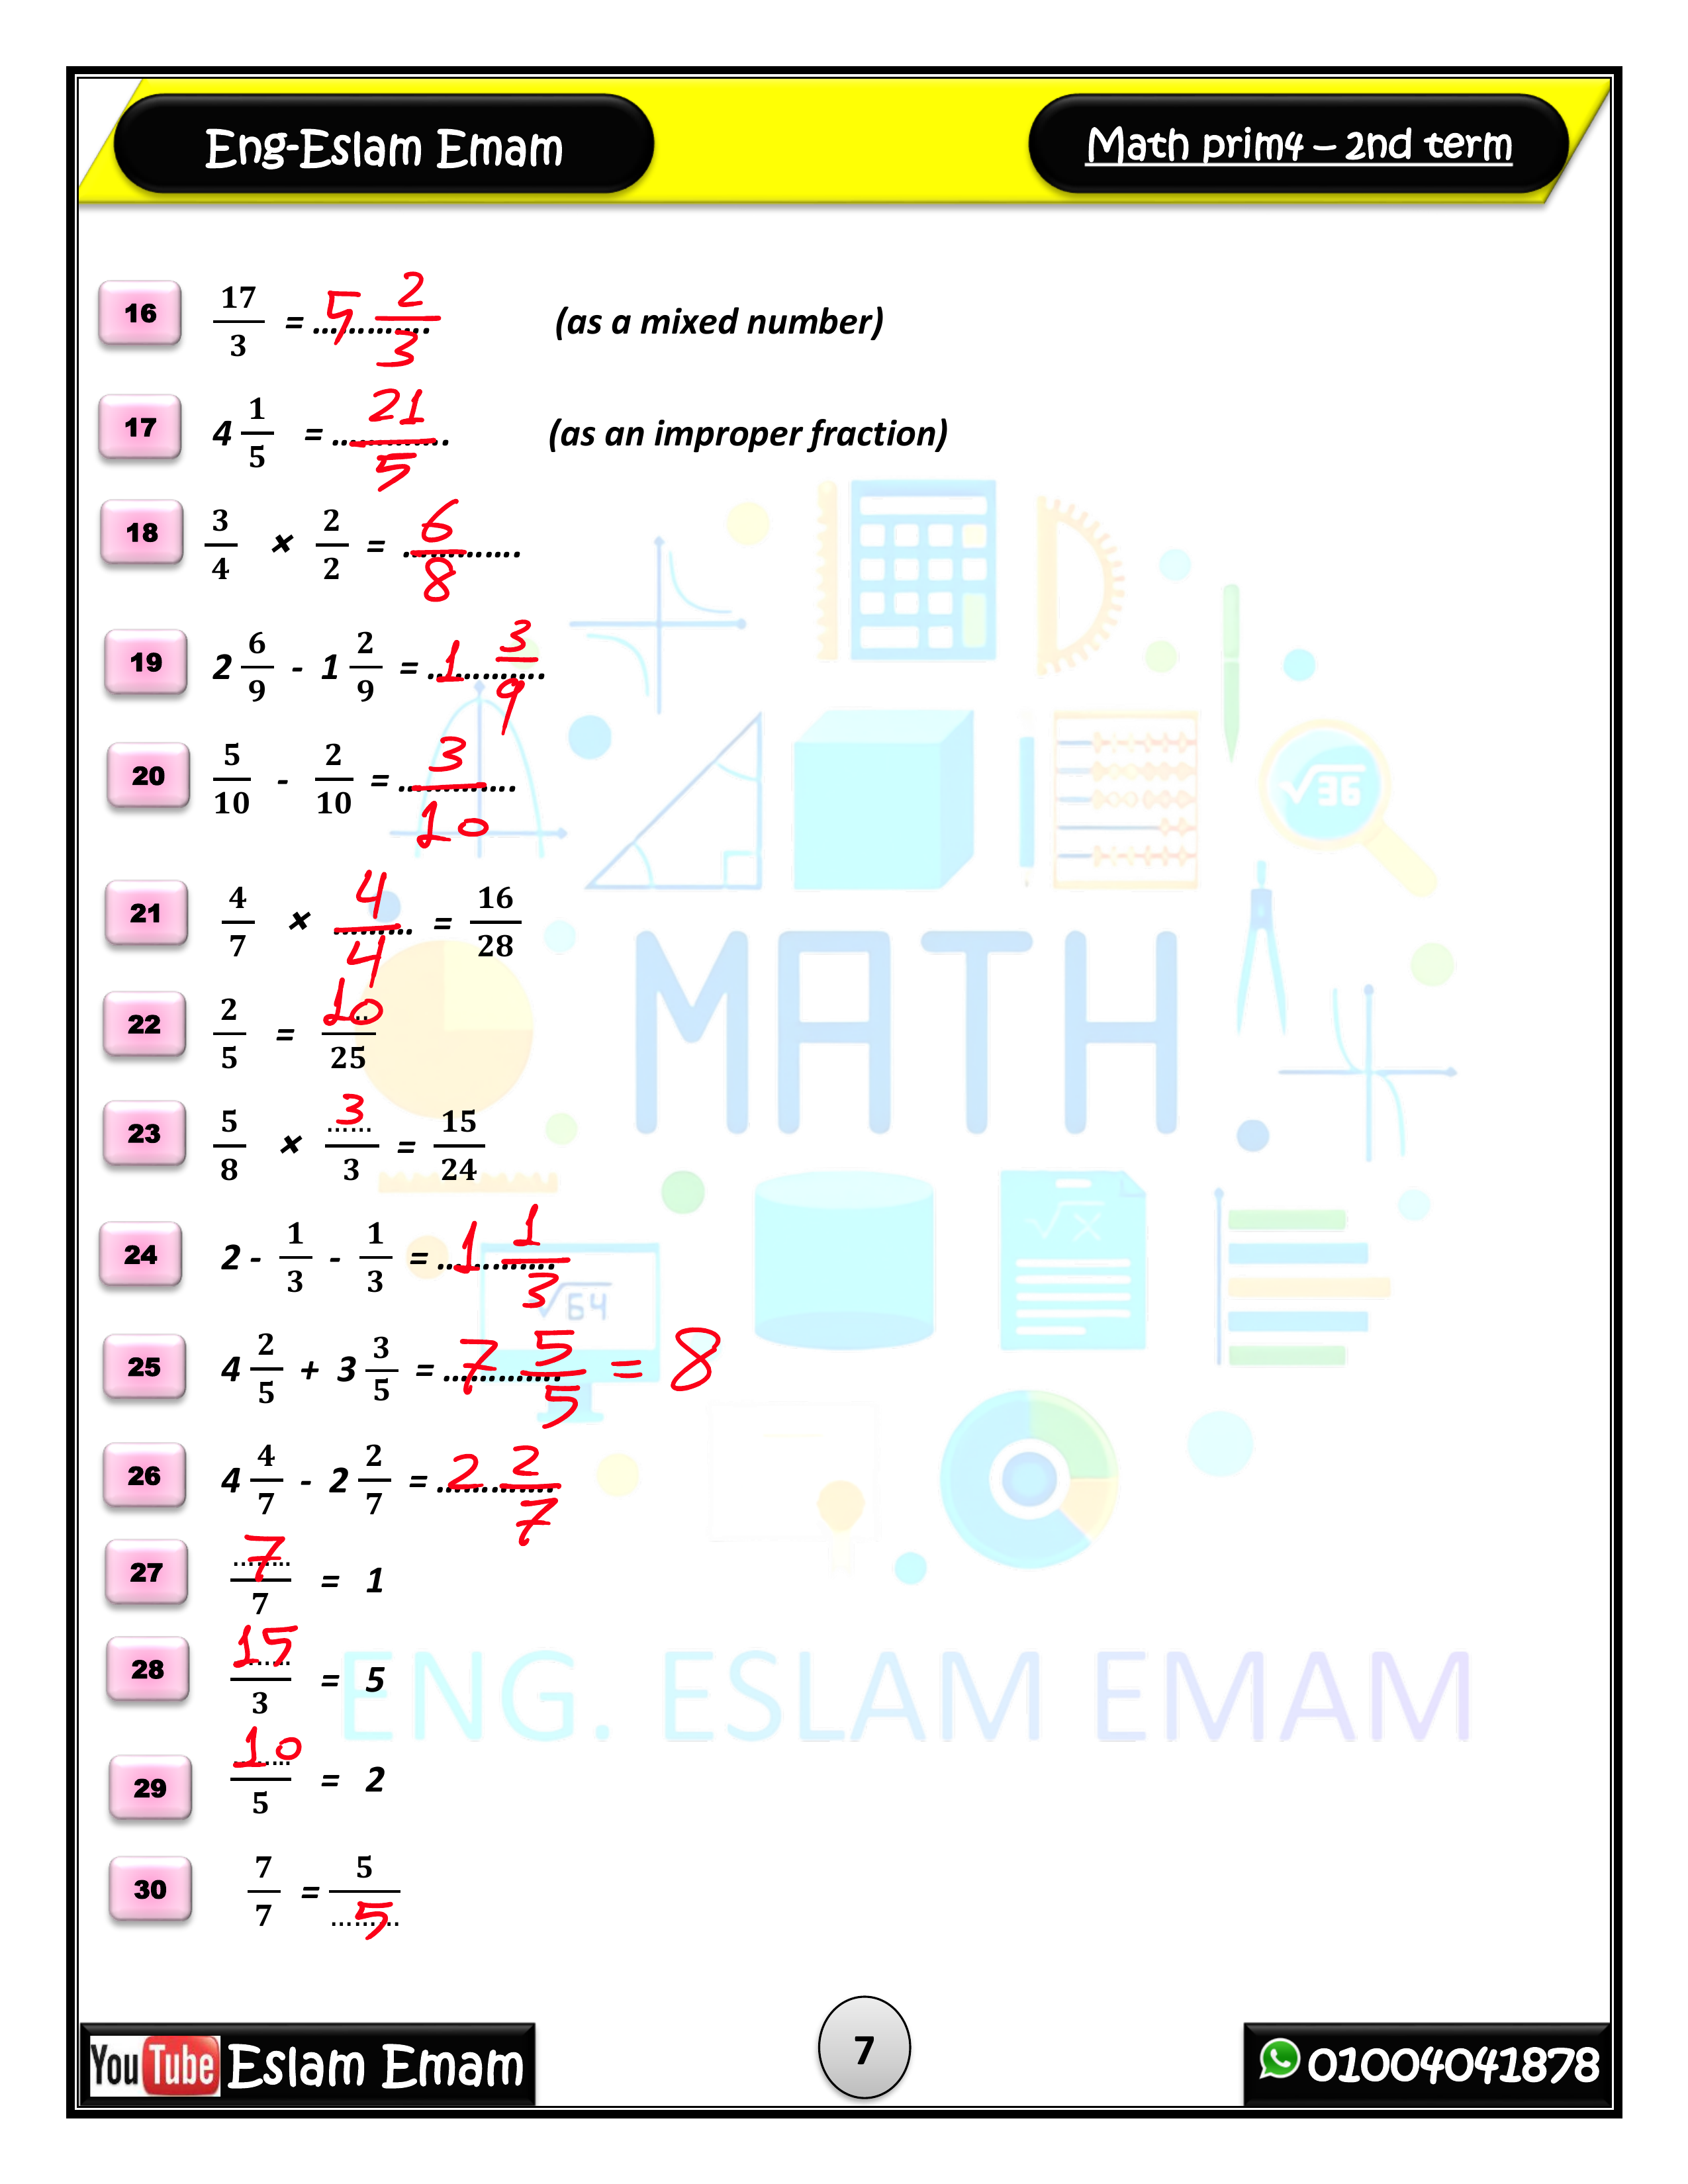 Eng-Eslam Emam
Math prim4 – 2nd term
16 17/3 = ............ 5 2/3 (as a mixed number)
17 4 1/5 = ............ 21/5 (as an improper fraction)
18 3/4 × 2/2 = ............ 6/8
19 2 6/9 - 1 2/9 = ............ 1 3/9
20 5/10 - 2/10 = ............ 3/10
21 4/7 × ......... 4/4 = 16/28
22 2/5 = 10/25
23 5/8 × 3/3 = 15/24
24 2 - 1/3 - 1/3 = ............ 1 1/3
25 4 2/5 + 3 3/5 = ............ 7 5/5 = 8
26 4 4/7 - 2 2/7 = ............ 2 2/7
27 7/7 = 1
28 15/3 = 5
29 10/5 = 2
30 7/7 = 5/5
√36
MATH
√x
√64
ENG. ESLAM EMAM
YouTube Eslam Emam
7
01004041878